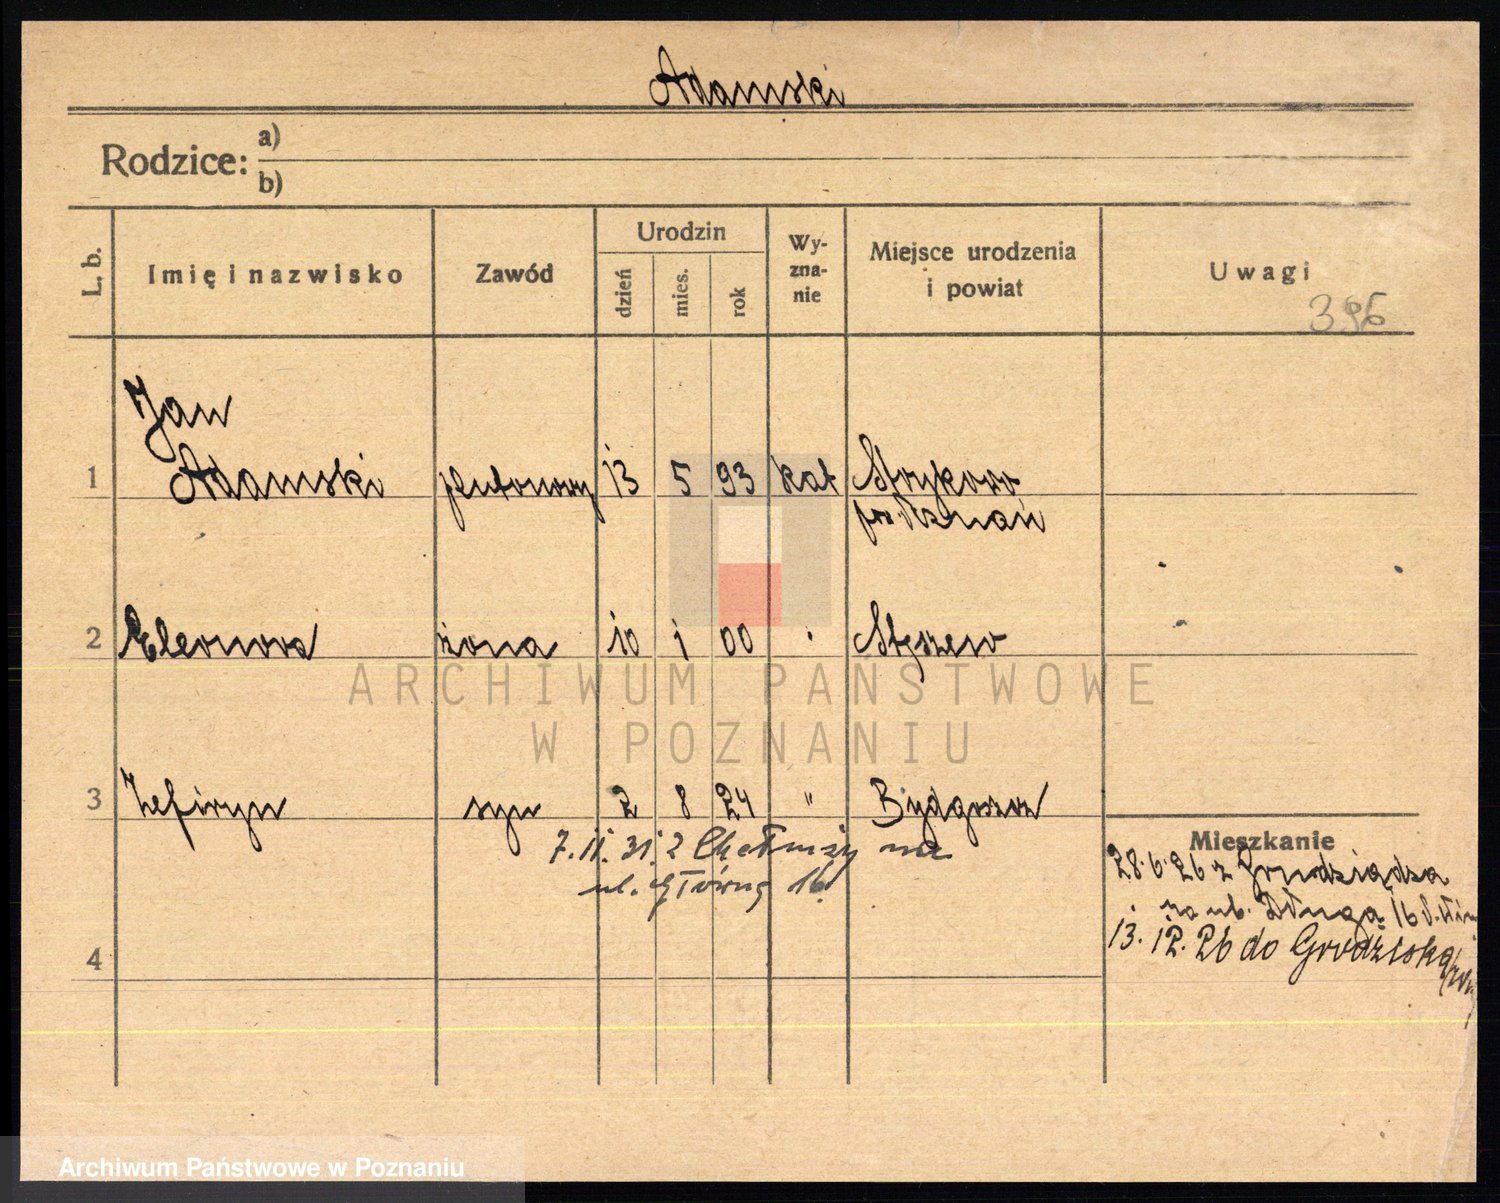 Adamski
Rodzice: a)
b)
L. b.
Imię i nazwisko
Zawód
Urodzin
dzień
mies.
rok
Wy-
zna-
nie
Miejsce urodzenia
i powiat
Uwagi
396
Jan
1 Adamski plutonowy 13 5 93 kat Strykowo
pow. Poznań
2 Eleonora żona 10 1 00 " Stęszew
ARCHIWUM PAŃSTWOWE
W POZNANIU
3 Zefiryn syn 2 8 24 " Bydgoszcz
7.11.31. z Chełmży na
ul. Główną 16.
Mieszkanie
28.6.26 z Grudziądza
na ul. Długą 16
13.12.26 do Grodziska
4
Archiwum Państwowe w Poznaniu